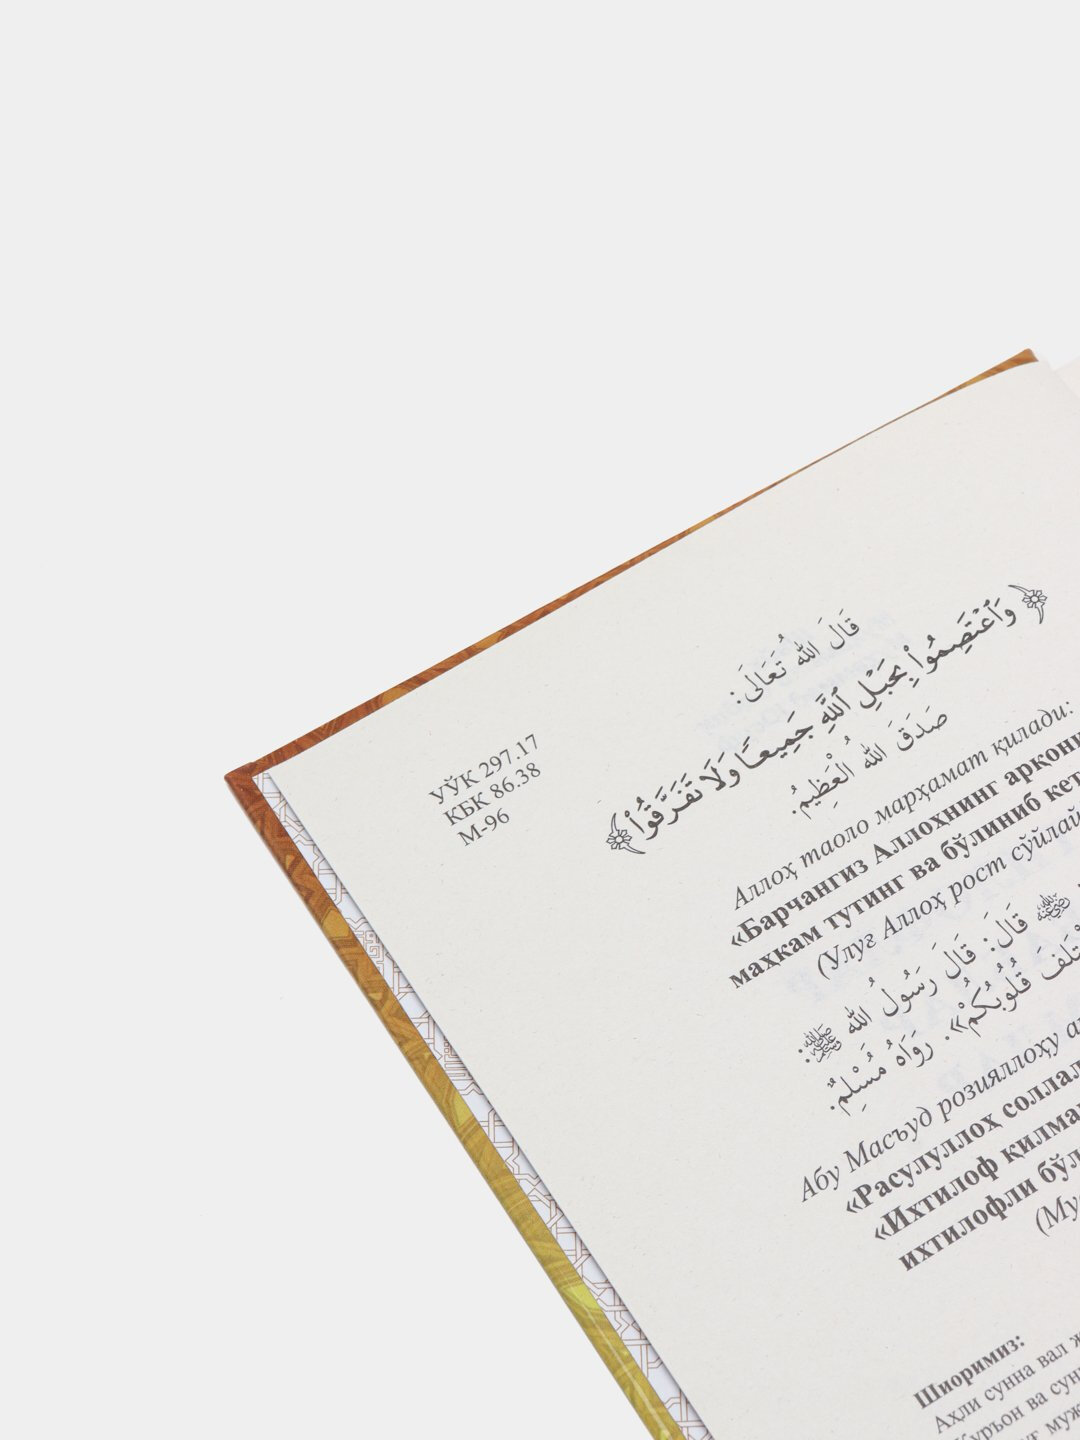 УЎК 297.17
КБК 86.38
М-96
قَالَ اللهُ تَعَالَى:
﴿وَٱعْتَصِمُوا۟ بِحَبْلِ ٱللَّهِ جَمِيعًا وَلَا تَفَرَّقُوا۟﴾
صَدَقَ اللهُ الْعَظِيمُ.
Аллоҳ таоло марҳамат қилади:
«Барчангиз Аллоҳнинг
маҳкам тутинг ва бўлиниб
(Улуғ Аллоҳ рост
ﷺ قَالَ: قَالَ رَسُولُ اللهِ ﷺ:
قُلُوبُكُمْ». رَوَاهُ مُسْلِمٌ.
Абу Масъуд розияллоҳу
«Расулуллоҳ
«Ихтилоф
ихтилофли
Шиоримиз:
Аҳли сунна вал
Қуръон ва